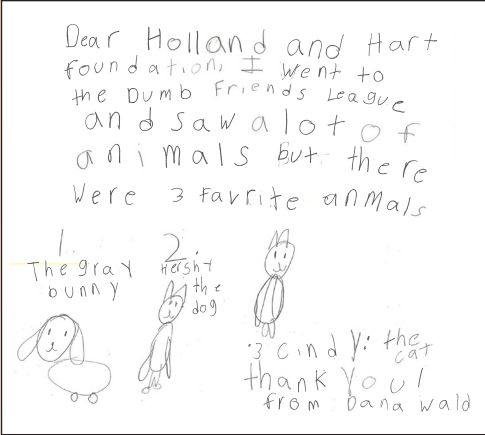 Dear Holland and Hart
foundation, I went to
the Dumb Friends League
and saw a lot of
animals but there
were 3 favrite anmals
1.
The gray
bunny
2.
Hershy
the
dog
3 cindy: the
cat
thank you!
from Dana wald